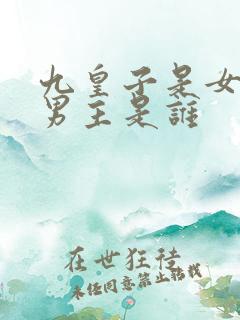 九皇子是女
男主是誰
在世狂徒
未经同意禁止转载